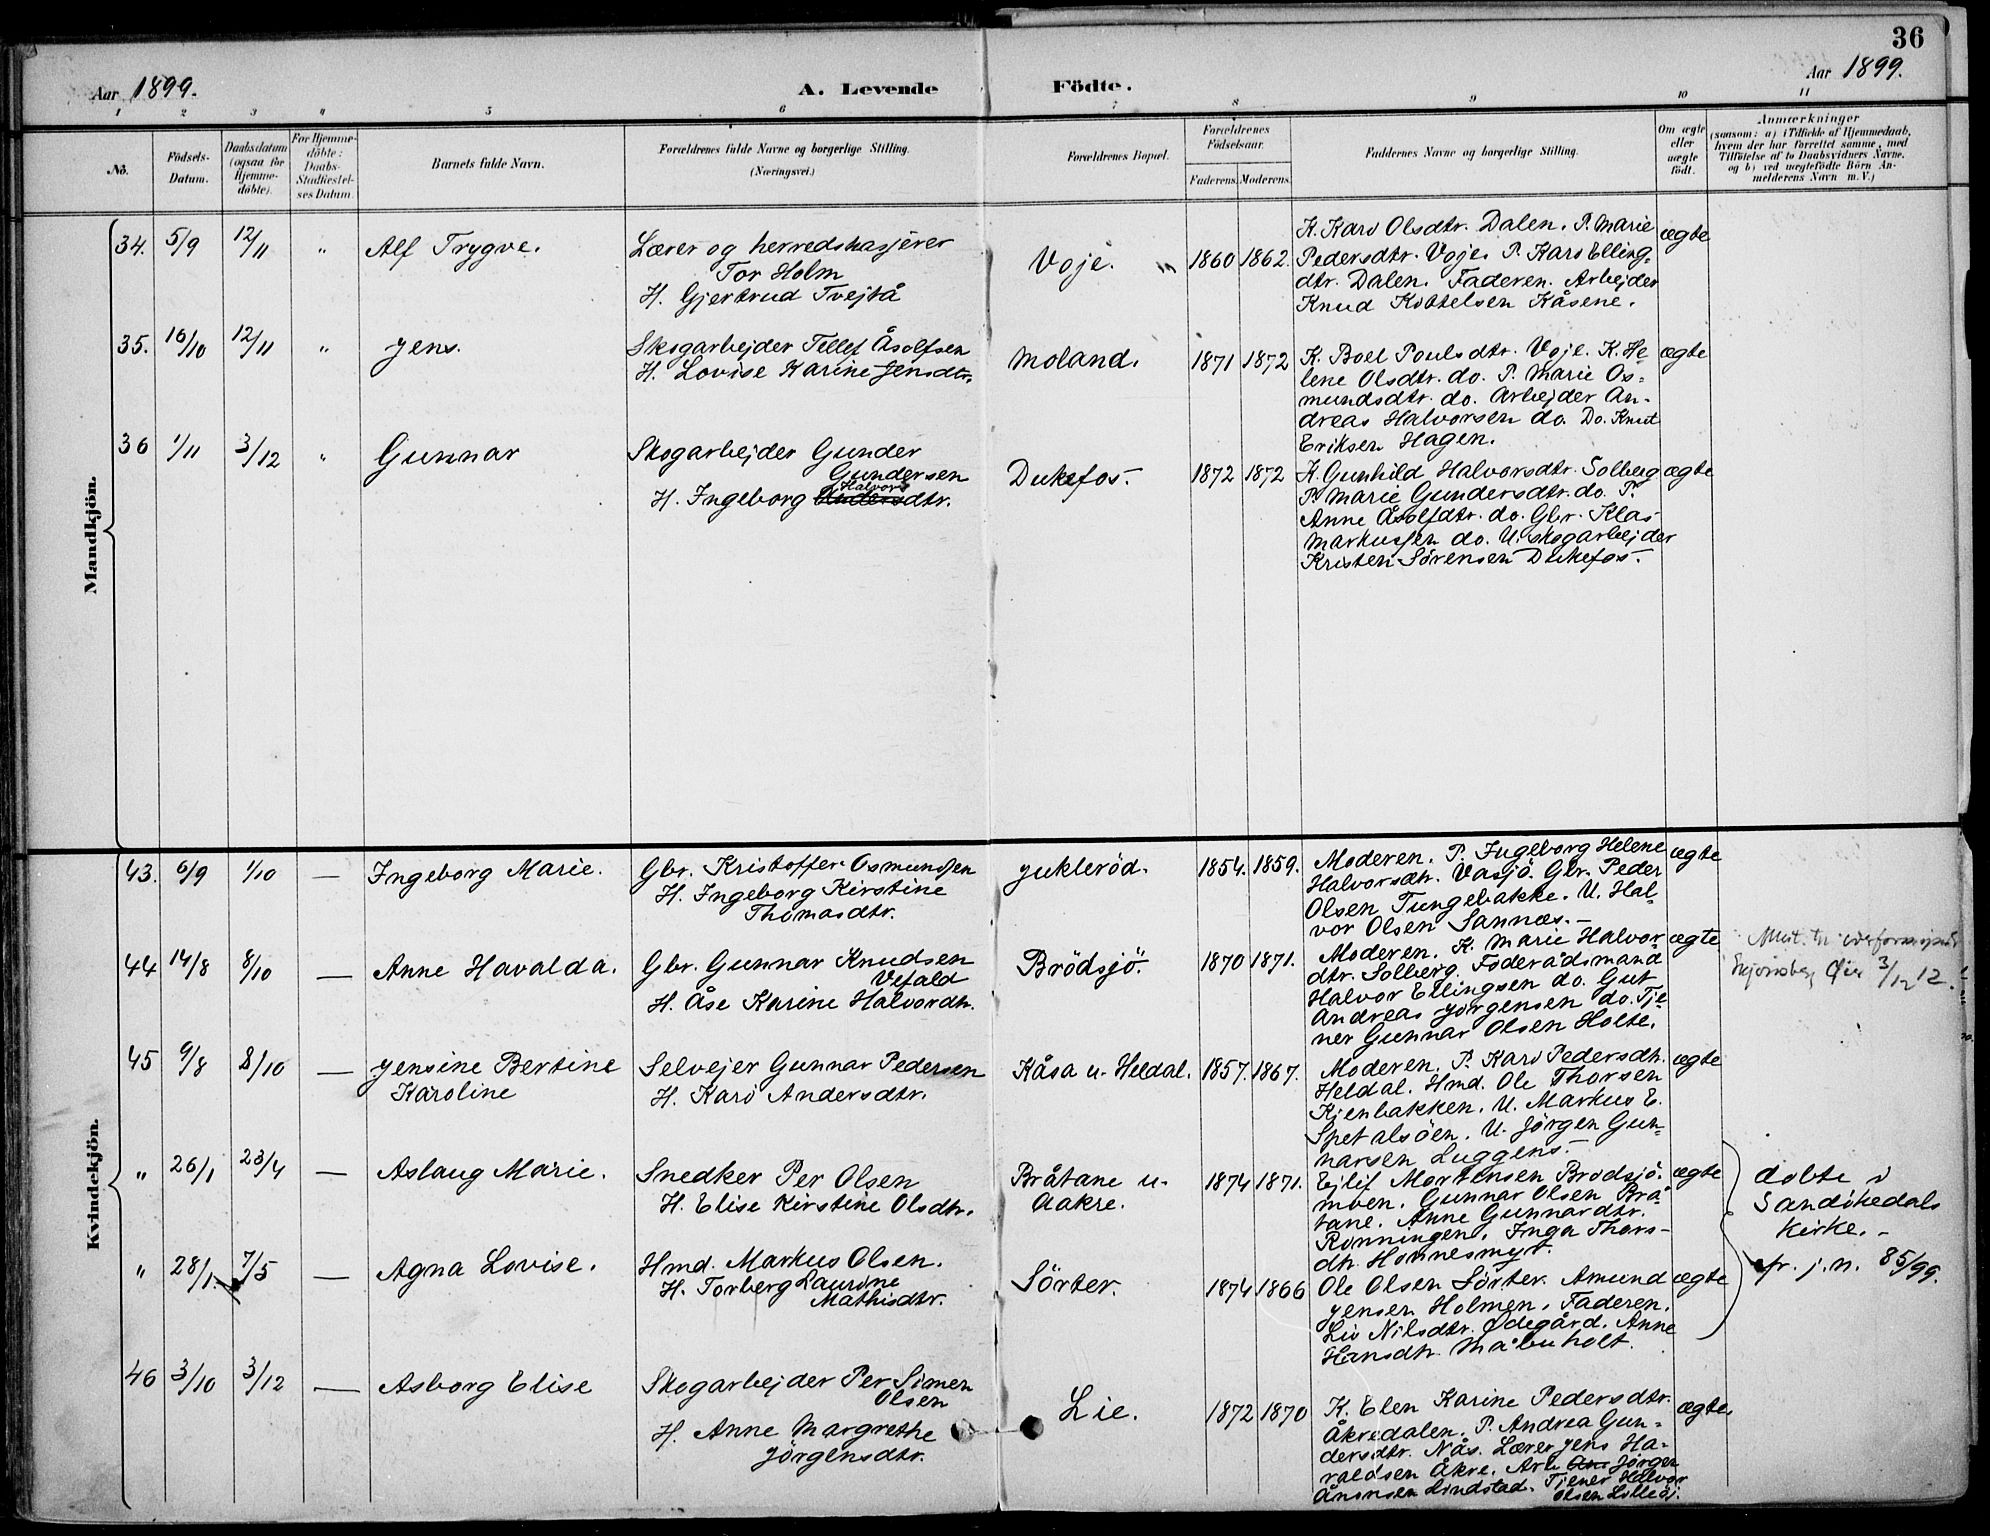 36
Aar 1899.
A. Levende Födte.
Aar 1899.
1 2 3 4 5 6 7 8 9 10 11
No.
Födsels-
Datum.
Daabsdatum
(ogsaa for
Hjemme-
döbte).
For Hjemme-
döbte:
Daabs-
Stadfæstel-
ses Datum.
Barnets fulde Navn.
Forældrenes fulde Navne og borgerlige Stilling.
(Næringsvei.)
Forældrenes Bopæl.
Forældrenes
Födselsaar.
Faderens. Moderens.
Faddernes Navne og borgerlige Stilling.
Om ægte
eller
uægte
födt.
Anmærkninger
(saasom: a) i Tilfælde af Hjemmedaab,
hvem der har forrettet samme, med
Tilföielse af to Daabsvidners Navne.
og b) ved uægtefödte Börn An-
melderens Navn m. V.)
Mandkjön.
34. 5/9 12/11 " Alf Trygve.
Lærer og herredskasjerer
Tor Holm
H. Gjertrud Tvejtå
Voje. 1860 1862.
K. Karo Olsdtr. Dalen. P. Marie
Pedersdtr. Voje. P. Karo Elling-
dtr. Dalen. Faderen. Arbejder
Knud Kittelsen Kåsene.
ægte
35. 16/10 12/11 " Jens.
Skogarbejder Tellef Åsolfsen
H. Lovise Karine Jensdtr.
Moland. 1871 1872
K. Boel Poulsdtr. Voje. K. He-
lene Olsdtr. do. P. Marie Os-
mundsdtr. do. Arbejder An-
dreas Halvorsen do. Do. Knut
Eriksen Hagen.
ægte
36 1/11 3/12 " Gunnar
Skogarbejder Gunder
Gundersen
Halvors
H. Ingeborg Andersdtr.
Dukefos. 1872 1872
K. Gunhild Halvorsdtr. Solberg
P. Marie Gundersdtr. do. P.
Anne Åsolfdtr. do. Gbr. Klas
Markussen do. U. skogarbejder
Kristen Sörensen Dukefos.
ægte
Kvindekjön.
43. 6/9 1/10 — Ingeborg Marie.
Gbr. Kristoffer Osmundsen
H. Ingeborg Kirstine
Thomasdtr.
Jukleröd. 1854. 1859.
Moderen. P. Ingeborg Helene
Halvorsdtr. Vasjö. Gbr. Peder
Olsen Tungebakke. U. Hal-
vor Olsen Sannæs.
ægte
44 14/8 8/10 — Anne Havalda.
Gbr. Gunnar Knudsen
Vefald
H. Åse Karine Halvordtr.
Brödsjö. 1870 1871.
Moderen. K. Marie Halvor-
dtr. Solberg. Föderådsmand
Halvor Ellingsen do. Gut
Andreas Jörgensen do. Tje-
ner Gunnar Olsen Holte.
ægte
3/12 12.
45 9/8 8/10 — Jensine Bertine
Karoline
Selvejer Gunnar Pedersen
H. Karo Andersdtr.
Kåsa u. Heldal. 1857. 1867.
Moderen. P. Karo Pedersdtr.
Heldal. Hmd. Ole Thorsen
Kjenbakken. U. Markus E.
Spetalsöen. U. Jörgen Gun-
narsen Luggens.
ægte
" 26/1 23/4 — Aslaug Marie.
Snedker Per Olsen
H. Elise Kirstine Olsdtr.
Bråtane u.
Aakre. 1874 1871.
Ejlif Mortensen Brödsjö-
moen. Gunnar Olsen Brå-
tane. Anne Gunnardtr.
Rönningen. Inga Thors-
dtr. Honnesmyr.
ægte
döbte i
Sandökedals
kirke.
pr. j.n. 85/99.
" 28/1. 7/5 — Agna Lovise.
Hmd. Markus Olsen.
H. Torberg Laurine
Mathisdtr.
Sörter. 1874 1866
Ole Olsen Sörter. Amund
Jensen Holmen. Faderen.
Liv Nilsdtr. Ødegård. Anne
Hansdtr. Måbuholt.
ægte
46 3/10 3/12 — Asborg Elise
Skogarbejder Per Simen
Olsen
H. Anne Margrethe
Jörgensdtr.
Lie. 1872 1870
K. Elen Karine Pedersdtr.
Åkredalen. P. Andrea Gun-
dersdtr. Nås. Lærer Jens Ha-
raldsen Åkre. Arb. Jörgen
Ånonsen Lindstad. Tjener Halvor
Olsen
ægte.